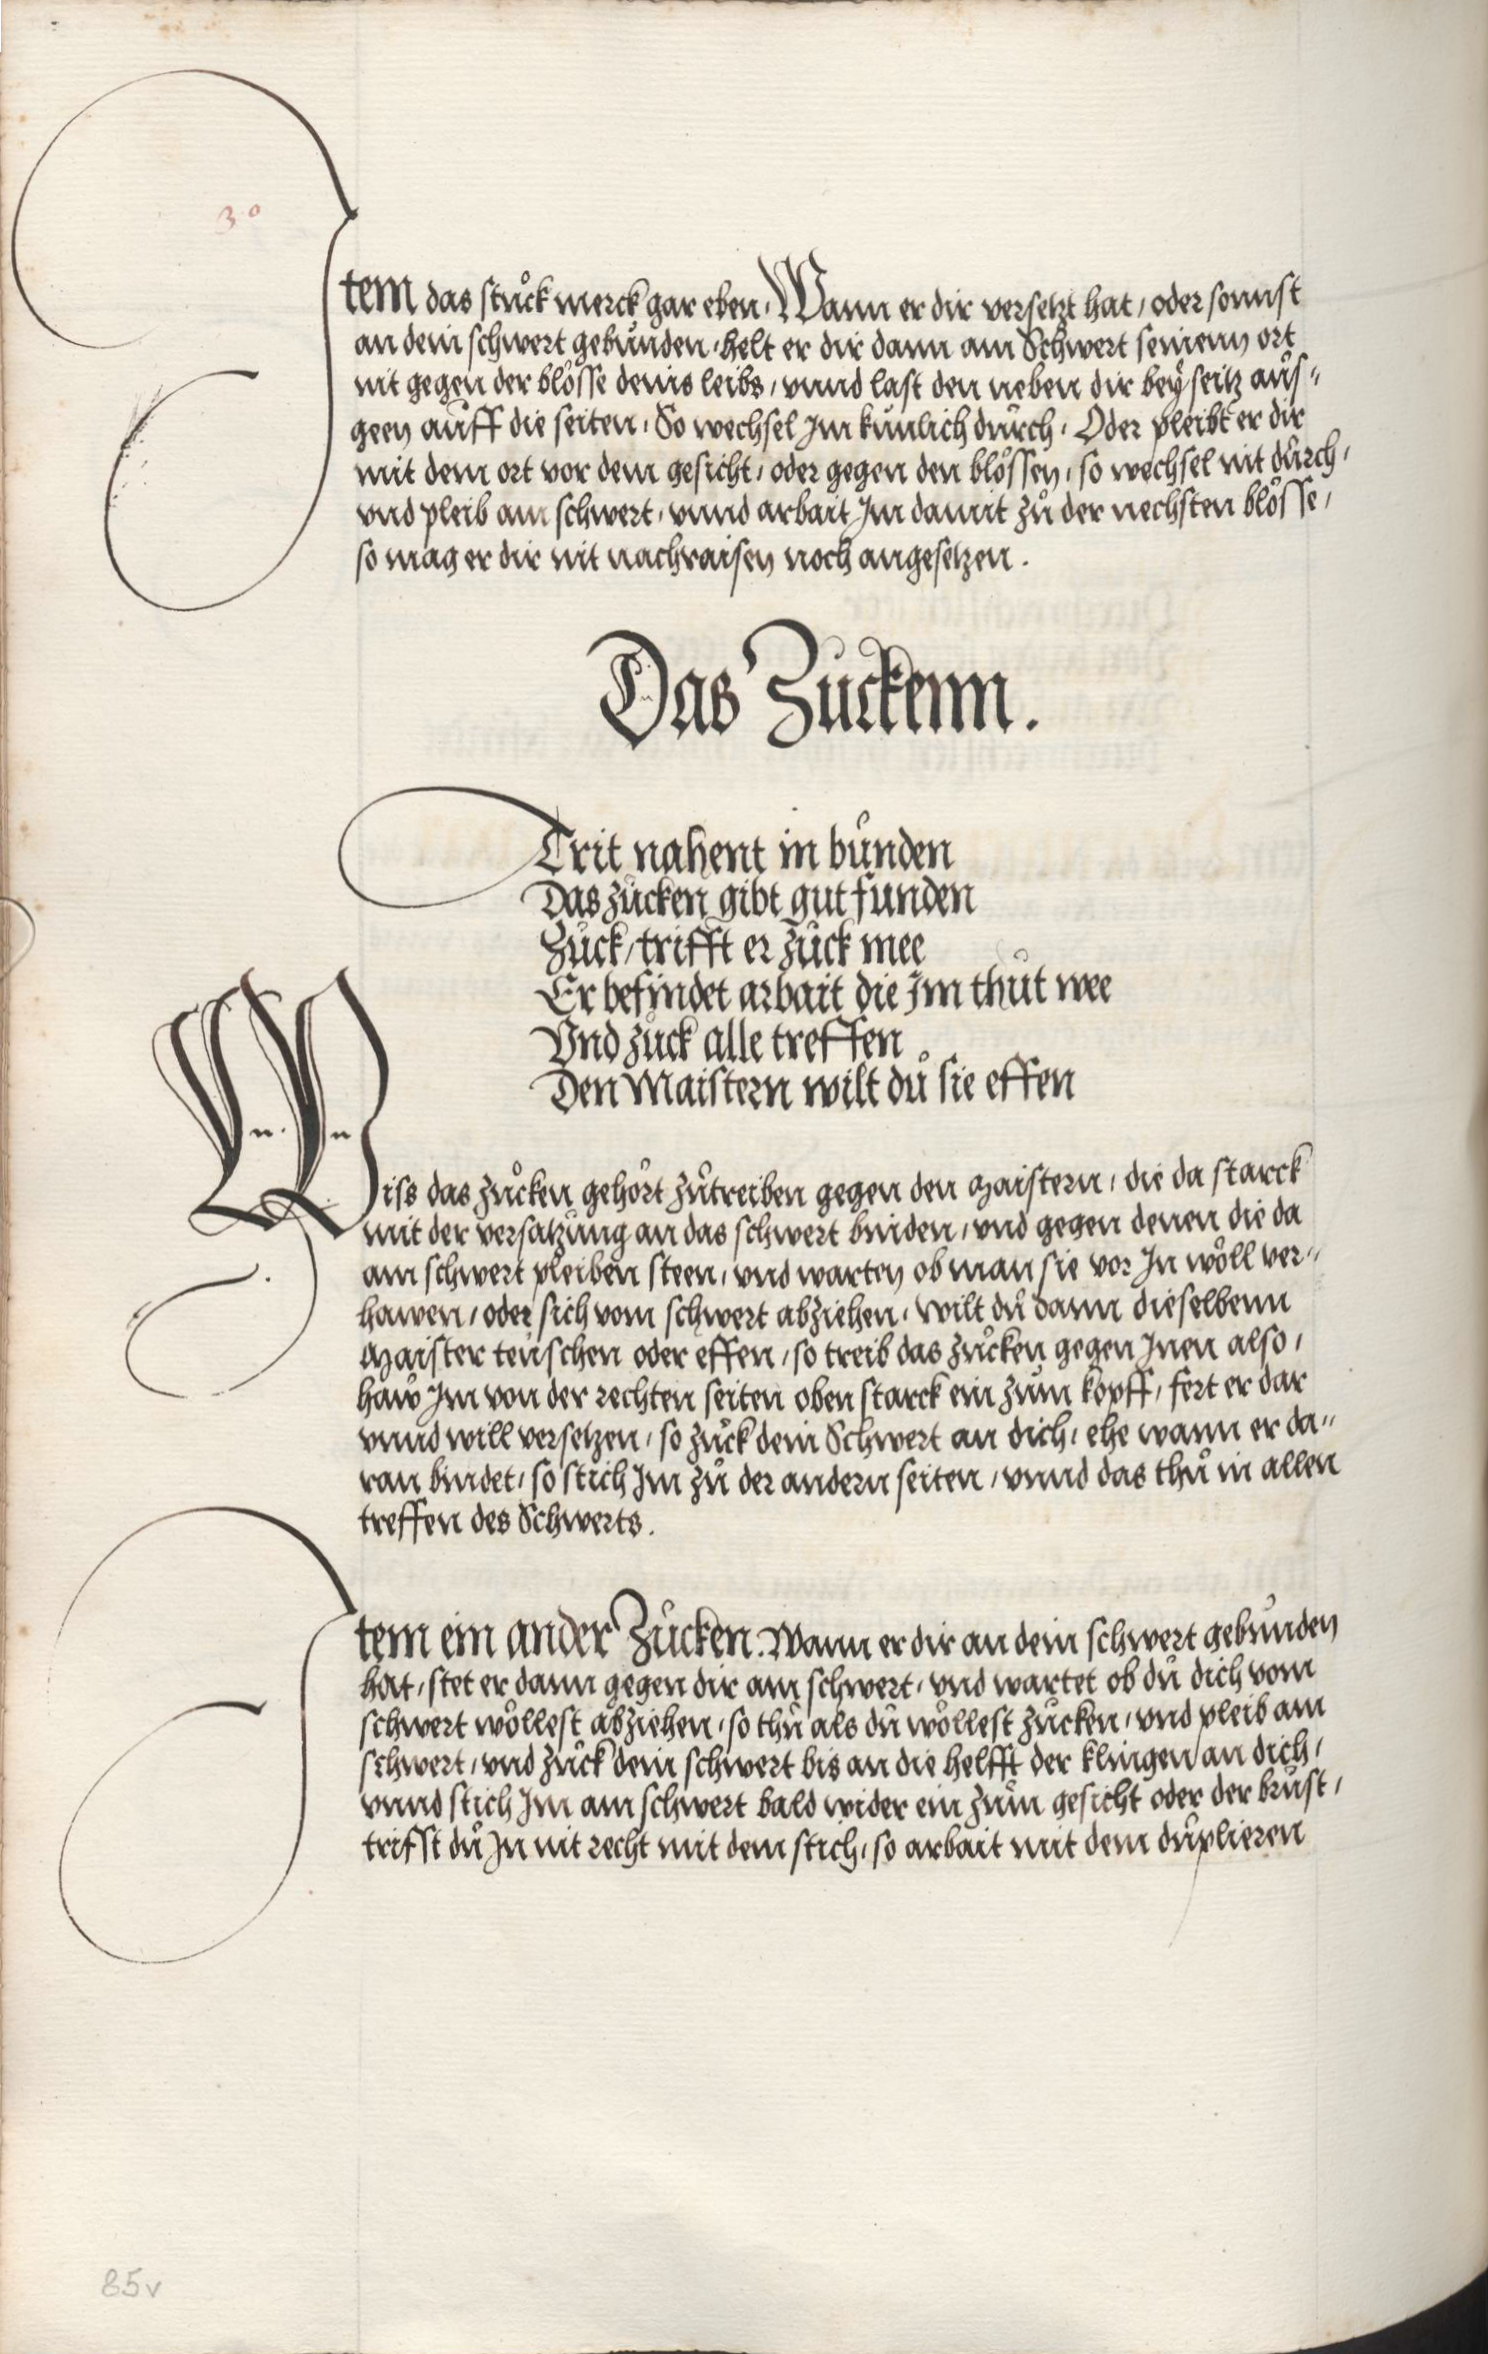 3°
Item das stuͦck merck gar eben / Wann er dir versetzt hat / oder sonnst
an dein schwert gebuͦnden / helt er dir dann am Schwert seinenn ort
nit gegen der bloͤsse deins leibs / vnnd last den neben dir beÿ seitz auͦs„
geen auͦff die seiten / So wechsel Im kuͦnlich duͦrch / Oder pleibt er dir
mit dem ort vor dem gesicht / oder gegen den bloͤssen / so wechsel nit duͦrch /
vnd pleib am schwert / vnnd arbait Im damit zuͦ der nechsten bloͤsse /
so mag er dir nit nachraisen noch angesetzen .
Das Zuckenn .
Trit nahent in buͦnden
Das zuͦcken gibt gut funden
Zuͦck / trifft er zuͦck mee
Er befindet arbait die Im thuͦt wee
Vnd zuͦck alle treffen
Den Maistern wilt duͦ sie effen
Wiss das zuͦcken gehoͤrt zuͦtreiben gegen den Maistern / die da starck
mit der versatzuͦng an das schwert binden / vnd gegen denen die da
am schwert pleiben steen / vnd warten ob man sie vor In woͤll ver„
hawen / oder sich vom schwert abziehen / wilt duͦ dann dieselbenn
Maister teuͦschen oder effen / so treib das zuͦcken gegen Inen also /
haw Im von der rechten seiten oben starck ein zuͦm kopff / fert er dar
vnnd will versetzen / so zuͦck dein Schwert an dich / ehe wann er da„
ran bindet / so stich Im zuͦ der andern seiten / vnnd das thuͦ in allen
treffen des Schwerts .
Item ein ander Zuͦcken . Wann er dir an dein schwert gebuͦnden
hat / stet er dann gegen dir am schwert / vnd wartet ob duͦ dich vom
schwert woͤllest abziehen / so thuͦ als duͦ woͤllest zuͦcken / vnd pleib am
schwert / vnd zuͦck dein schwert bis an die helfft der klingen an dich /
vnnd stich Im am schwert bald wider ein zuͦm gesicht oder der bruͦst /
triffst duͦ In nit recht mit dem stich / so arbait mit dem duͦplieren
85v